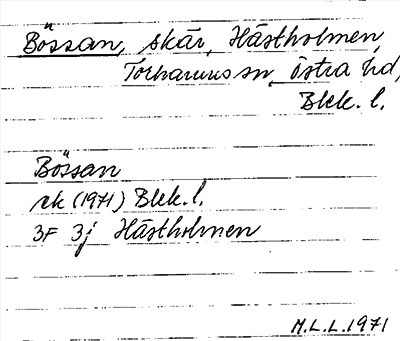 Bössan, skär, Hästholmen,
Torhamns sn, östra hd,
Blek. l.
Bössan
rk (1971) Blek. l.
3F 3j Hästholmen
M.L.L. 1971